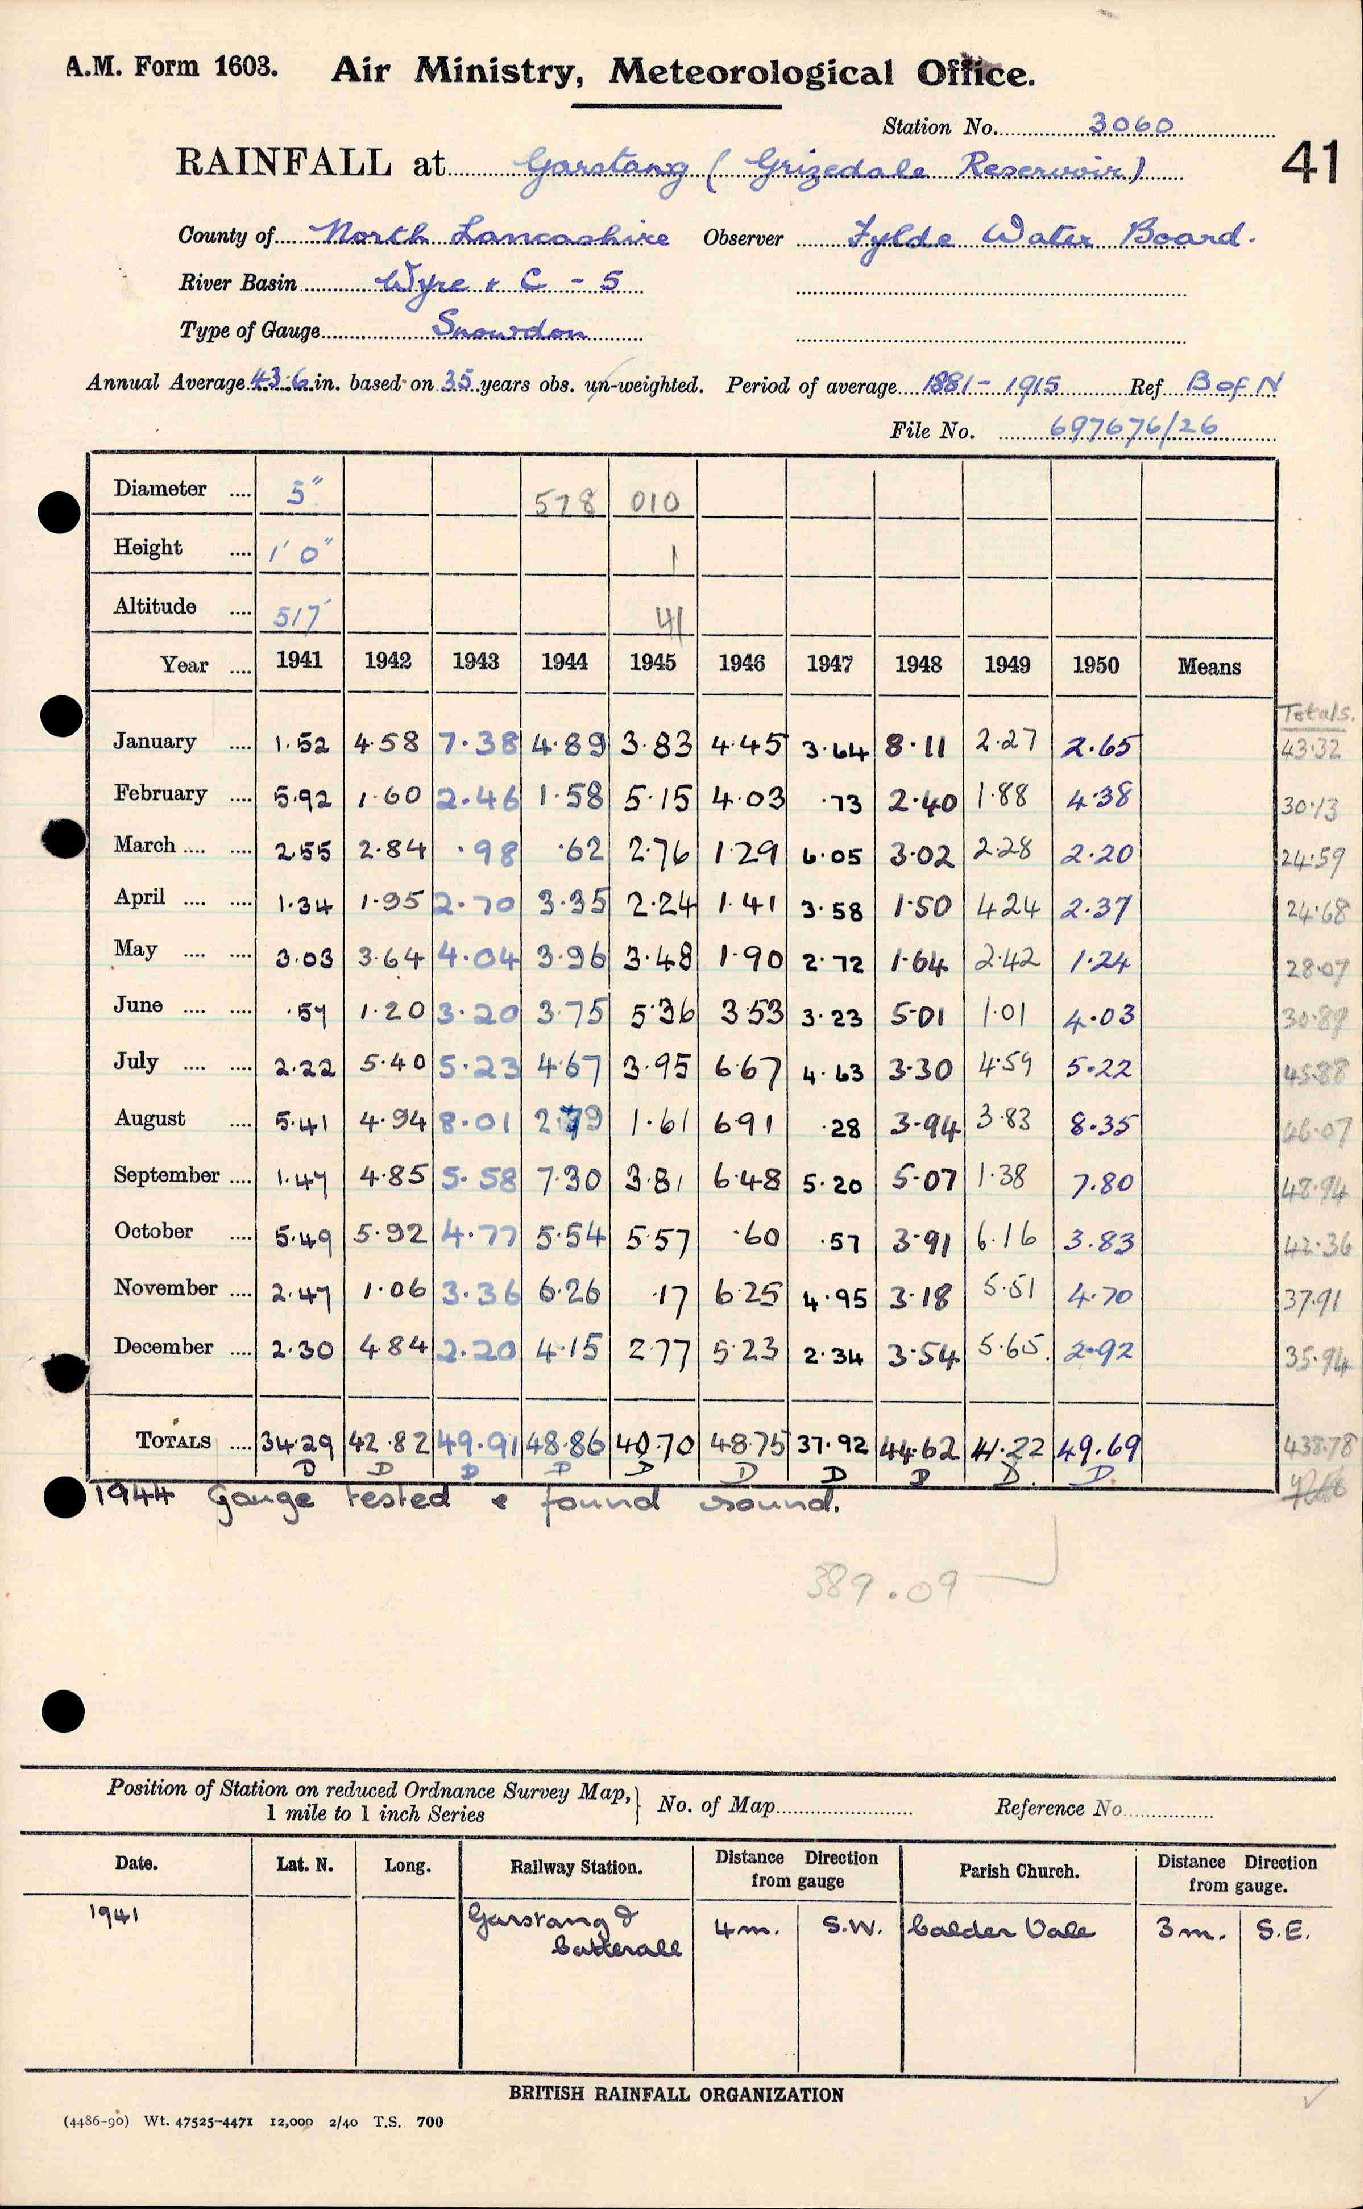 A.M. Form 1603. Air Ministry, Meteorological Office.
Station No. 3060
41
RAINFALL at Garstang (Grizedale Reservoir)
County of North Lancashire Observer Fylde Water Board.
River Basin Wyre & C - 5
Type of Gauge Snowdon
Annual Average 43.6 in. based on 35 years obs. un-weighted. Period of average 1881 - 1915 Ref B of N
File No. 697676/26
Diameter .... 5" 578 010
Height .... 1' 0" 1
Altitude .... 517' 41
Year .... 1941 1942 1943 1944 1945 1946 1947 1948 1949 1950 Means
Totals.
January .... 1.52 4.58 7.38 4.89 3.83 4.45 3.64 8.11 2.27 2.65 43.32
February .... 5.92 1.60 2.46 1.58 5.15 4.03 .73 2.40 1.88 4.38 30.13
March .... .... 2.55 2.84 .98 .62 2.76 1.29 6.05 3.02 2.28 2.20 24.59
April .... .... 1.34 1.95 2.70 3.35 2.24 1.41 3.58 1.50 4.24 2.37 24.68
May .... .... 3.03 3.64 4.04 3.96 3.48 1.90 2.72 1.64 2.42 1.24 28.07
June .... .... .57 1.20 3.20 3.75 5.36 3.53 3.23 5.01 1.01 4.03 30.89
July .... .... 2.22 5.40 5.23 4.67 3.95 6.67 4.63 3.30 4.59 5.22 45.88
August .... 5.41 4.94 8.01 2.79 1.61 6.91 .28 3.94 3.83 8.35 46.07
September .... 1.47 4.85 5.58 7.30 3.81 6.48 5.20 5.07 1.38 7.80 48.94
October .... 5.49 5.92 4.77 5.54 5.57 .60 .57 3.91 6.16 3.83 42.36
November .... 2.47 1.06 3.36 6.26 .17 6.25 4.95 3.18 5.51 4.70 37.91
December .... 2.30 4.84 2.20 4.15 2.77 5.23 2.34 3.54 5.65 2.92 35.94
TOTALS .... 34.29 42.82 49.91 48.86 40.70 48.75 37.92 44.62 41.22 49.69 438.78
D D D D D D D D D. D.
1944 Gauge tested & found sound.
389.09
Position of Station on reduced Ordnance Survey Map, 1 mile to 1 inch Series } No. of Map Reference No
Date. Lat. N. Long. Railway Station. Distance Direction from gauge Parish Church. Distance Direction from gauge.
1941 Garstang & Catterall 4 m. S.W. Calder Vale 3 m. S.E.
BRITISH RAINFALL ORGANIZATION
(4486-90) Wt. 47525-4471 12,000 2/40 T.S. 700